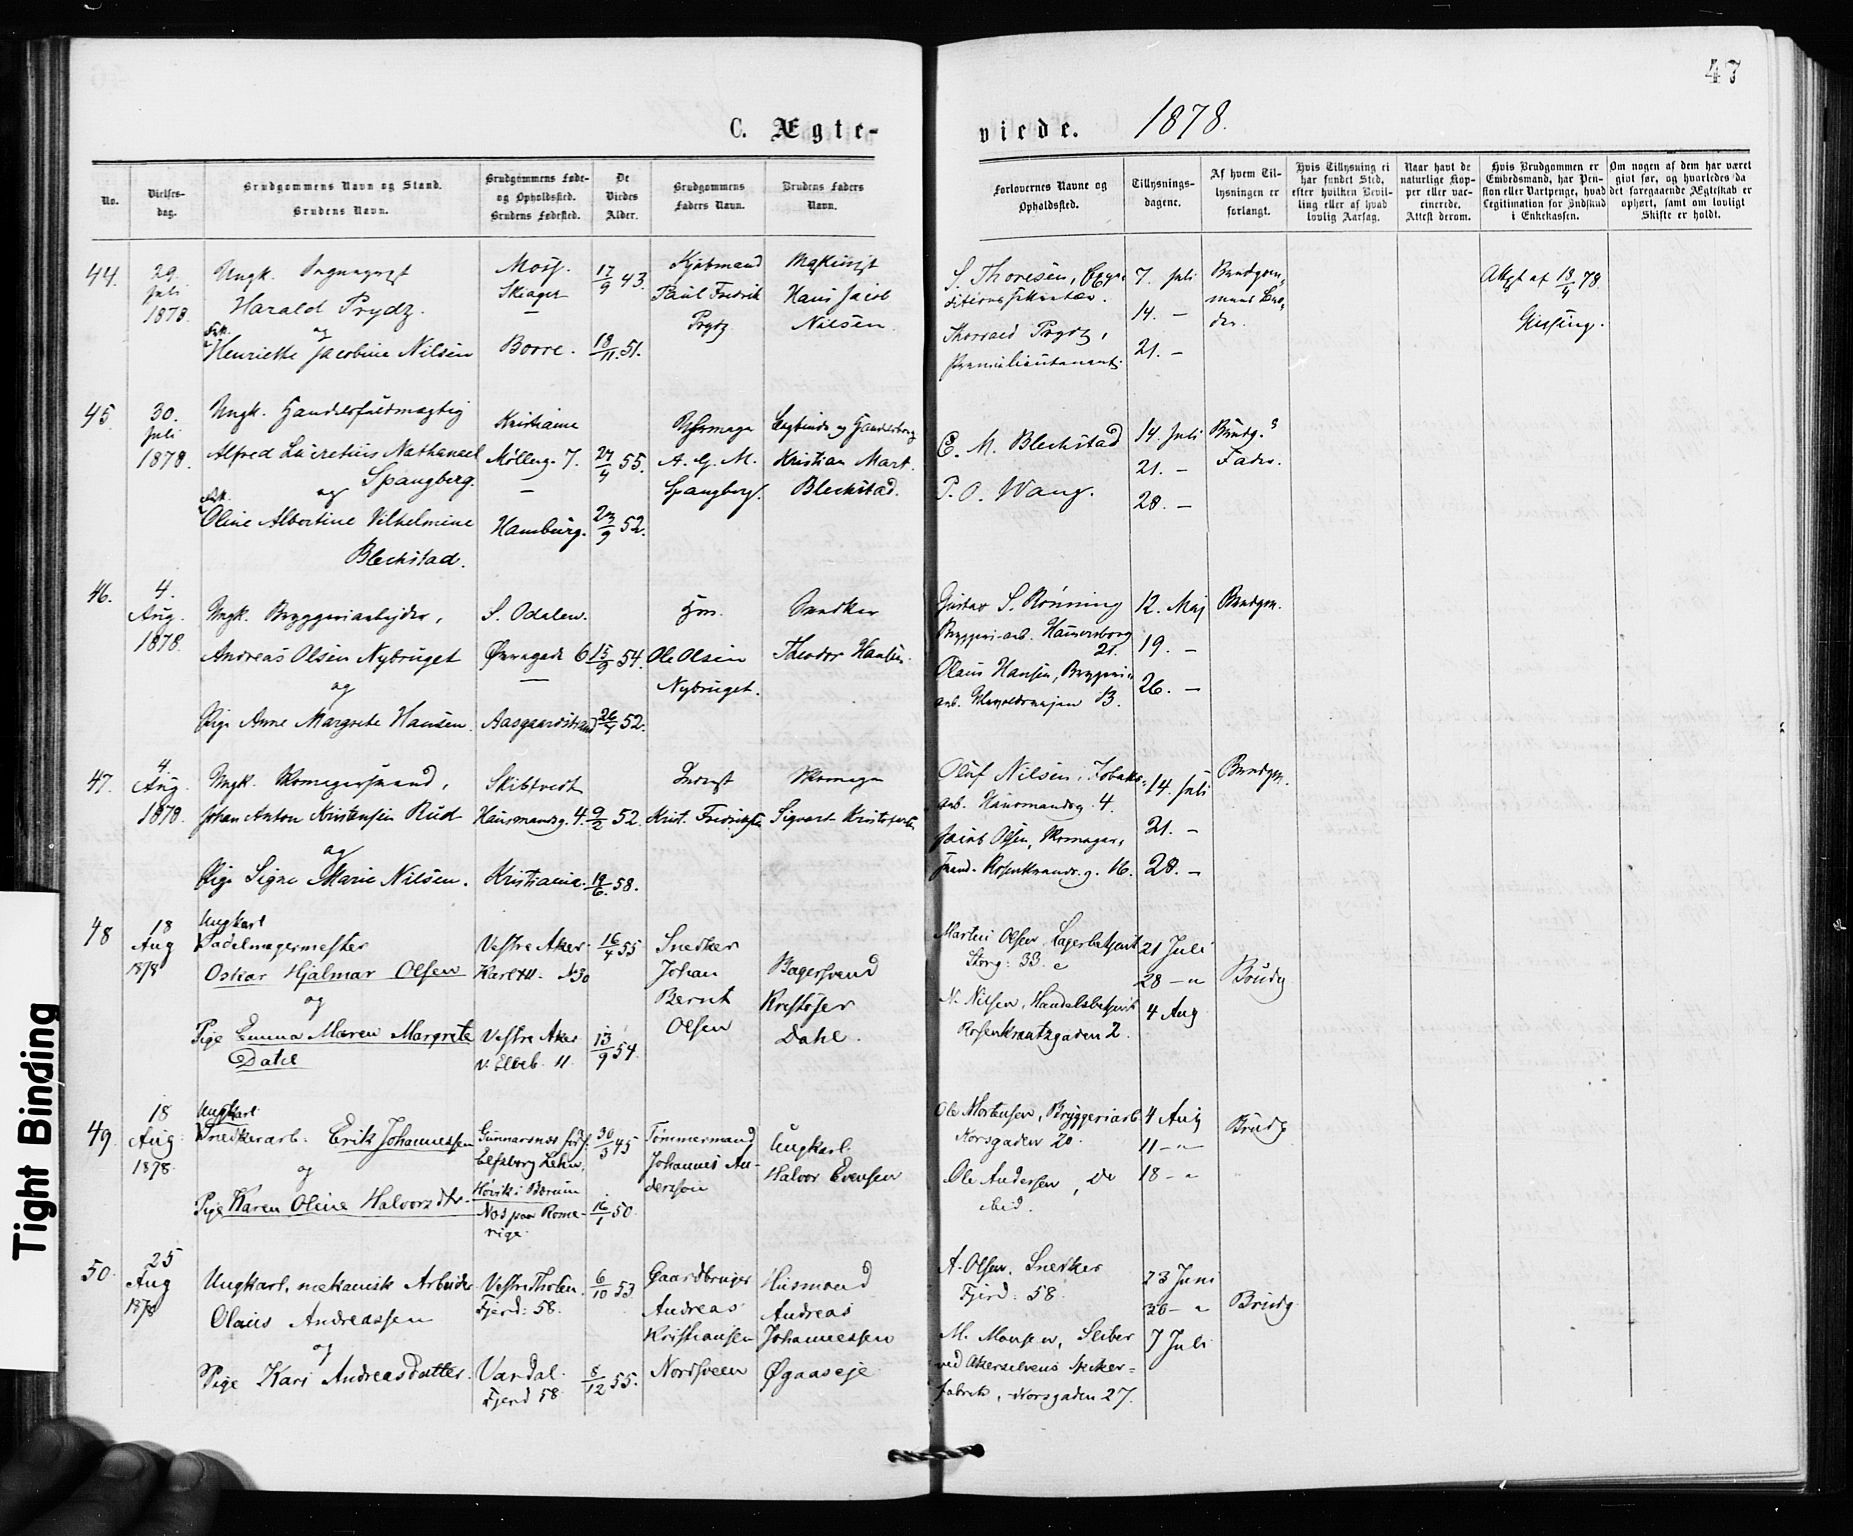 47
C. Ægte-
viede. 1878.
No.
Vielses-
dag.
Brudgommens Navn og Stand.
Brudens Navn.
Brudgommens Føde-
og Opholdssted.
Brudens Fødested.
De
Viedes
Alder.
Brudgommens
Faders Navn.
Brudens Faders
Navn.
Forlovernes Navne og
Opholdssted.
Tillysnings-
dagene.
Af hvem Til-
lysningen er
forlangt.
Hvis Tillysning ei
har fundet Sted,
efter hvilken Bevil-
ling eller af hvad
lovlig Aarsag.
Naar havt de
naturlige Kop-
per eller vac-
cinerede.
Attest derom.
Hvis Brudgommen er
Embedsmand, har Pen-
sion eller Vartpenge, hvad
Legitimation for Indskud
i Enkekassen.
Om nogen af dem har været
gift før, og hvorledes da
det foregaaende Ægteskab er
ophørt, samt om lovligt
Skifte er holdt.
44.
29.
Juli
1878.
Ungk.
Harald Prydz.
og
Frk.
Henriette Jacobine Nilsen
Moss.
Borre.
17/9 43.
18/11 51.
Kjøbmand
Paul Fredrik
Prydz
Hans Jacob
Nilsen
S. Thoresen,
Thorvald Prydz,
Premierlieutenant.
7. Juli
14. —
21. —
Attest af 13/4 78
45.
30.
Juli
1878.
Ungk. Handelsfuldmægtig
Alfred Lucretius Nathanael
Spangberg.
og
Frk.
Oline Albertine Vilhelmine
Bleckstad.
Kristiania
Møllerg. 7.
Hamburg.
27/4 55.
23/9 52.
Uhrmager
A. G. M.
Spangberg.
Kristian Mart.
Bleckstad.
C. M. Bleckstad
P. O. Wang.
14. Juli
21. —
28. —
Brudg.s
Fader.
46.
4.
Aug.
1878.
Ungk. Bryggeriarbejder,
Andreas Olsen Nybruget
og
Pige Anne Margrete Hansen.
S. Odalen.
6
Aasgaardstrand
15/9 54.
26/4 52.
Hm.
Ole Olsen
Nybruget.
Snedker
Theodor Hansen.
Gustav S. Rønning
Bryggeri-arb. Hammersborg
21.
Olaus Hansen, Bryggeri-
arb.
12. Maj
19. —
26. —
Brudgom.
47.
4.
Aug.
1878.
Ungk. Skomagersvend,
Johan Anton Kristensen Rud
og
Pige Signe Marie Nilsen.
Skibtvedt
Hausmandsg. 4.
Kristiania.
9/2 52.
19/6 58.
Inderst
Krist. Fredriksen
Skomager
Sigvart Kristofersen
Oluf Nilsen, Tobaks-
arb. Hausmandsg. 4.
Jacob Olsen, Skomager-
svend. Rosenkrandsg. 16.
14. Juli
21. —
28. —
Brudgom.
48
18
Aug
1878
Ungkarl
Sadelmagermester
Oskar Hjalmar Olsen
og
Pige Emma Maren Margrete
Dahl
Vestre Aker
Vestre Aker
v. Elleb. 11.
16/4 55
13/9 54.
Snedker
Johan
Bernt
Olsen
Bagersvend
Kristofer
Dahl.
Martin Olsen, Lagerbetjent
Storg: 33. c
N. Nilsen, Handelsbetjent
Rosenkrantzgaden 2.
21 Juli
28 — "
4 Aug
Brudg
49.
18
Aug.
1878.
Ungkarl
Snedkerarb. Erik Johannessen
og
Pige Karen Oline Halvorsdtr.
Gunnarsnæs
Elfsborg Lehn.
Høvik i Bærum
Næs paa Rome-
rige.
30/3 45
16/1 50.
Tømmermand
Johannes An-
dersson
Ungkarl
Halvor Evensen
Ole Mortensen, Bryggeriarb
Korsgaden 20.
Ole Andersen, Do
ibid.
4 Aug
11 — "
18 — "
Brudg
50.
25
Aug
1878
Ungkarl, mekanisk Arbeider
Olaus Andreassen
og
Pige Kari Andreasdatter.
Vestre Thoten.
Fjerd: 58.
Vardal.
Fjerd 58
6/10 53
8/12 55.
Gaardbruger
Andreas
Kristiansen
Nordsveen
Husmand
Andreas
Johannessen
Øgaaseje
A. Olsen. Snedker
Fjerd: 58.
M. Monsen, Sliber
ved Akerselvens
fabrik, Korsgaden 27.
23 Juni
30 — "
7 Juli
Brudg
Tight Binding